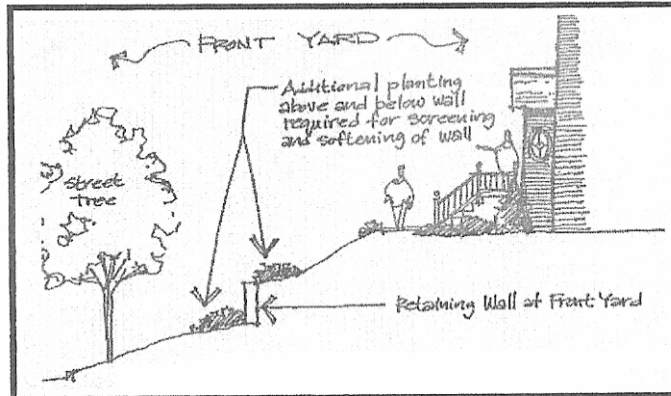 FRONT YARD
Additional planting
above and below wall
required for screening
and softening of wall
Street
Tree
Retaining Wall at Front Yard